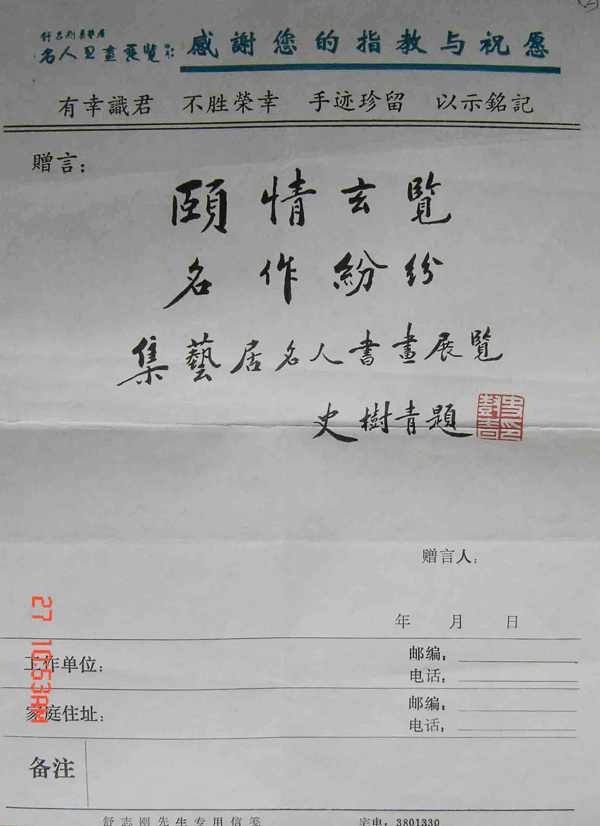 舒志刚集艺居
名人书画展览 感謝您的指教与祝愿
有幸識君 不胜榮幸 手迹珍留 以示銘記
赠言：
頤情玄覽
名作紛紛
集藝居名人書畫展覽
史樹青題
赠言人：
年 月 日
工作单位： 邮编：
电话：
家庭住址： 邮编：
电话：
备注
舒志刚先生专用信笺 宅电：3801330
27 10:53AM